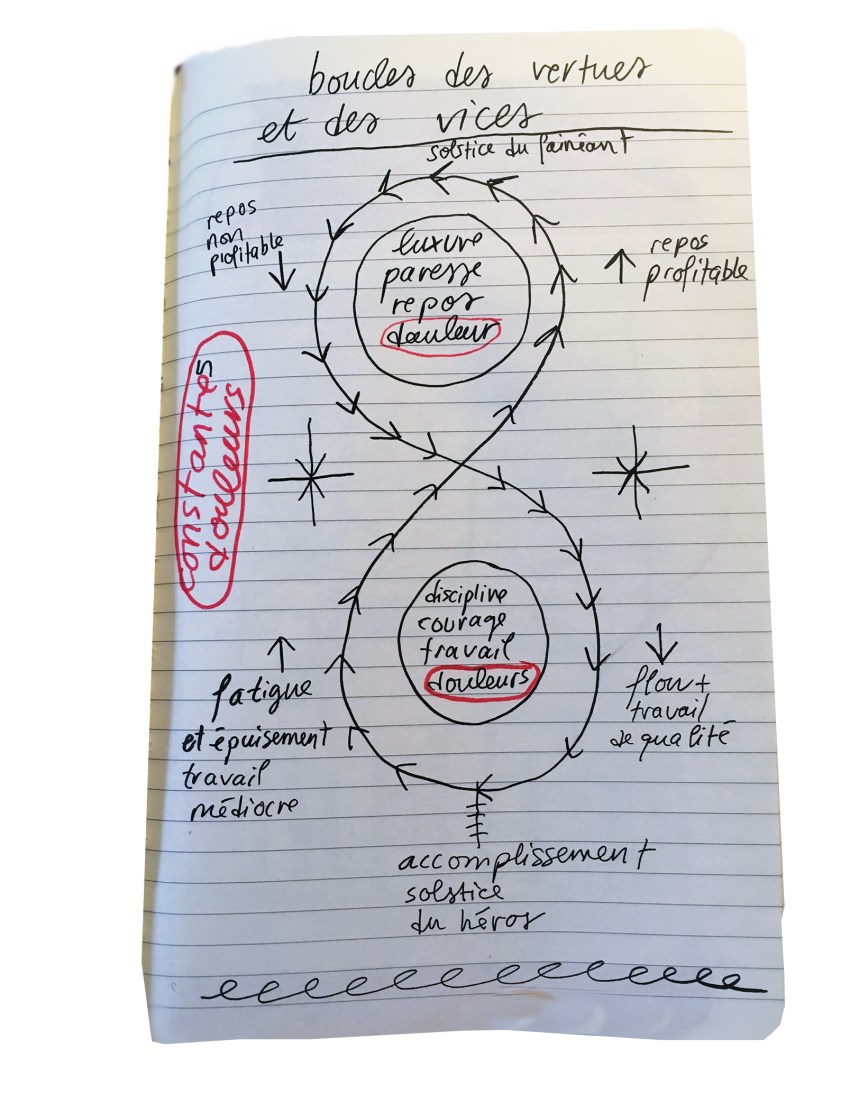 boucles des vertues
et des vices
solstice du fainéant
repos
non
profitable
repos
profitable
luxure
paresse
repos
douleur
constantes
douleurs
discipline
courage
travail
douleurs
fatigue
et épuisement
travail
médiocre
flow +
travail
de qualité
accomplissement
solstice
du héros